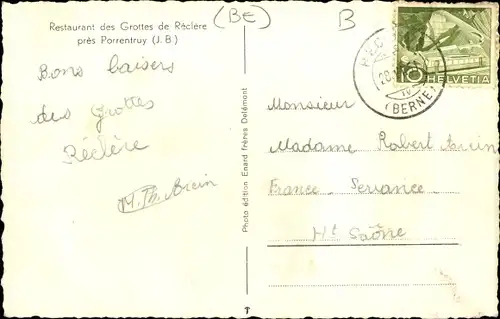 Restaurant des Grottes de Réclère
près Porrentruy (J.B.)
(BE)
B
Bons baisers
des Grottes
Réclère
M. Th. Arcin
Photo édition Enard frères Delémont
(BERNE)
10 HELVETIA
Monsieur
Madame Robert Arcin
France. Servance
Hte Saône